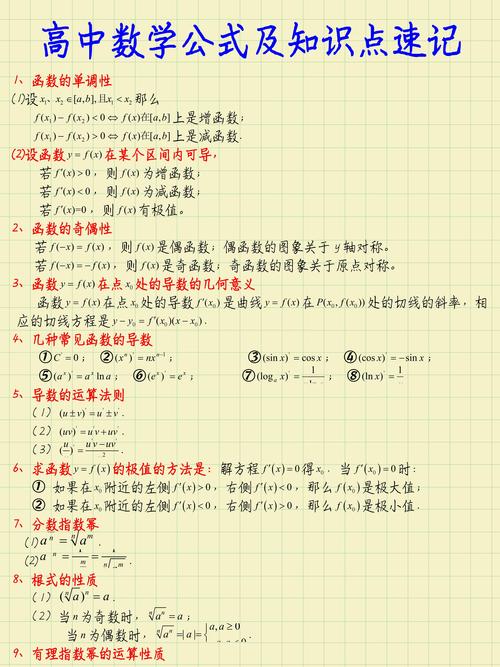 高中数学公式及知识点速记
1、函数的单调性
(1)设x₁、x₂∈[a,b],且x₁<x₂那么
f(x₁)-f(x₂)<0⇔f(x)在[a,b]上是增函数;
f(x₁)-f(x₂)>0⇔f(x)在[a,b]上是减函数.
(2)设函数y=f(x)在某个区间内可导,
若f'(x)>0,则f(x)为增函数;
若f'(x)<0,则f(x)为减函数;
若f'(x)=0,则f(x)有极值。
2、函数的奇偶性
若f(-x)=f(x),则f(x)是偶函数;偶函数的图象关于y轴对称。
若f(-x)=-f(x),则f(x)是奇函数;奇函数的图象关于原点对称。
3、函数y=f(x)在点x₀处的导数的几何意义
函数y=f(x)在点x₀处的导数f'(x₀)是曲线y=f(x)在P(x₀,f(x₀))处的切线的斜率,相
应的切线方程是y-y₀=f'(x₀)(x-x₀).
4、几种常见函数的导数
①C'=0; ②(xⁿ)'=nxⁿ⁻¹; ③(sin x)'=cos x; ④(cos x)'=-sin x;
⑤(aˣ)'=aˣ ln a; ⑥(eˣ)'=eˣ; ⑦(logₐ x)'=1/ ⑧(ln x)'=1/
5、导数的运算法则
(1)(u±v)'=u'±v'.
(2)(uv)'=u'v+uv'.
(3)(u/)'=(u'v-uv')/ ².
6、求函数y=f(x)的极值的方法是:解方程f'(x)=0得x₀.当f'(x₀)=0时:
① 如果在x₀附近的左侧f'(x)>0,右侧f'(x)<0,那么f(x₀)是极大值;
② 如果在x₀附近的左侧f'(x)<0,右侧f'(x)>0,那么f(x₀)是极小值.
7、分数指数幂
(1)a n=ⁿ√aᵐ.
(2)a n = 1/
8、根式的性质
(1)(ⁿ√a)ⁿ=a.
(2)当n为奇数时,ⁿ√aⁿ=a;
当n为偶数时,ⁿ√aⁿ=|a|={a,a≥0
9、有理指数幂的运算性质